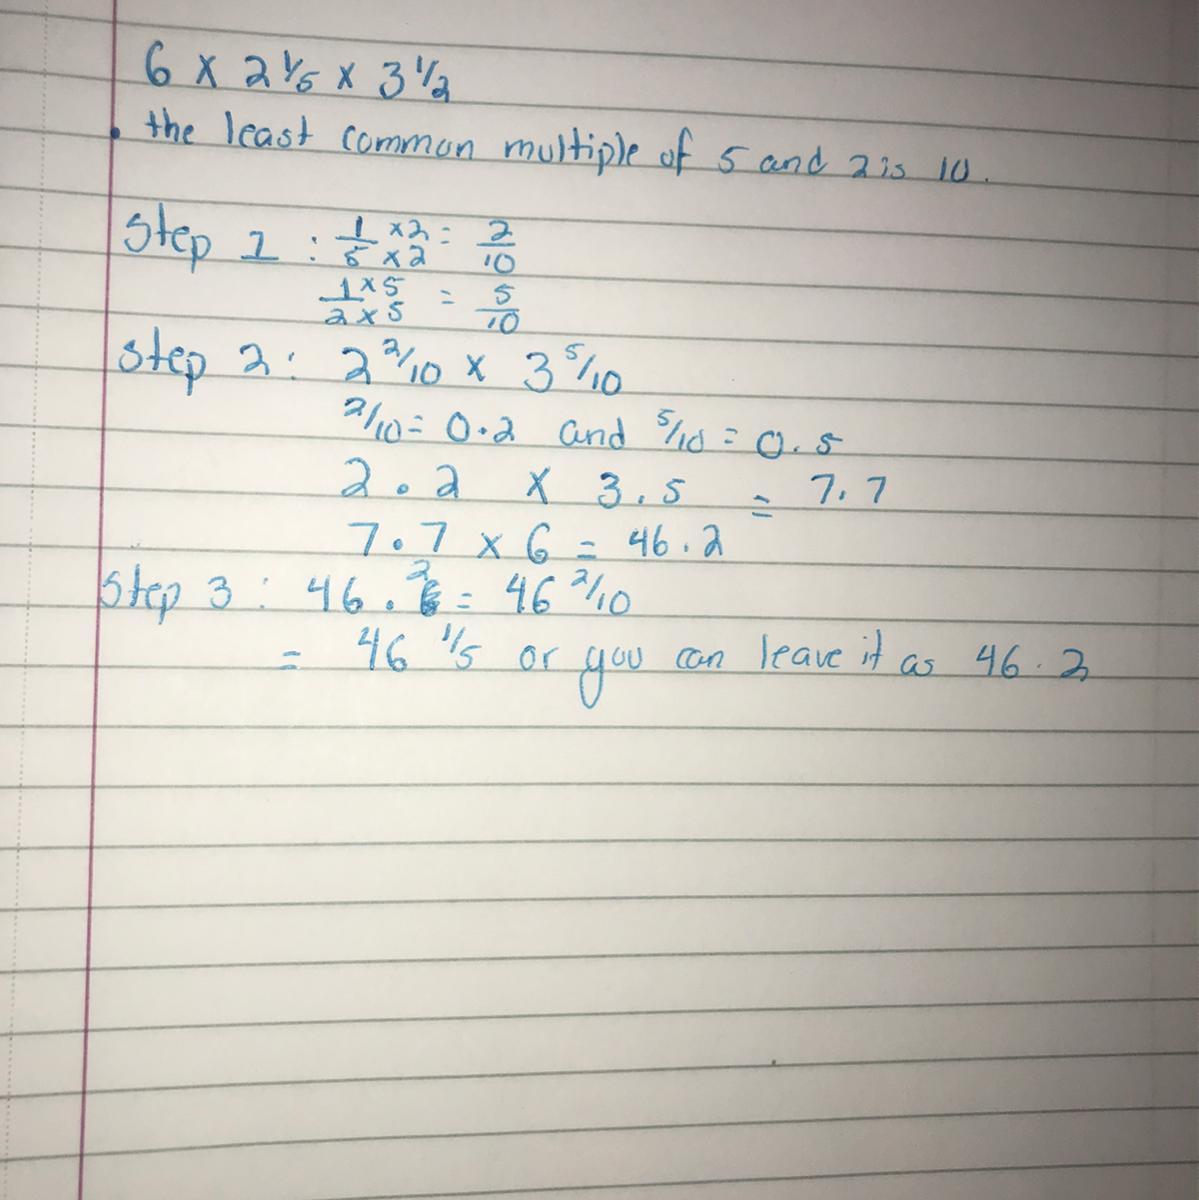 6 x 2 1/5 x 3 1/2
. the least common multiple of 5 and 2 is 10.
Step 1 : 1/5 x2/x2 = 2/10
1x5/2x5 = 5/10
Step 2 : 2 2/10 x 3 5/10
2/10 = 0.2 and 5/10 = 0.5
2.2 x 3.5 = 7.7
7.7 x 6 = 46.2
Step 3 : 46.2 = 46 2/10
= 46 1/5 or you can leave it as 46.2